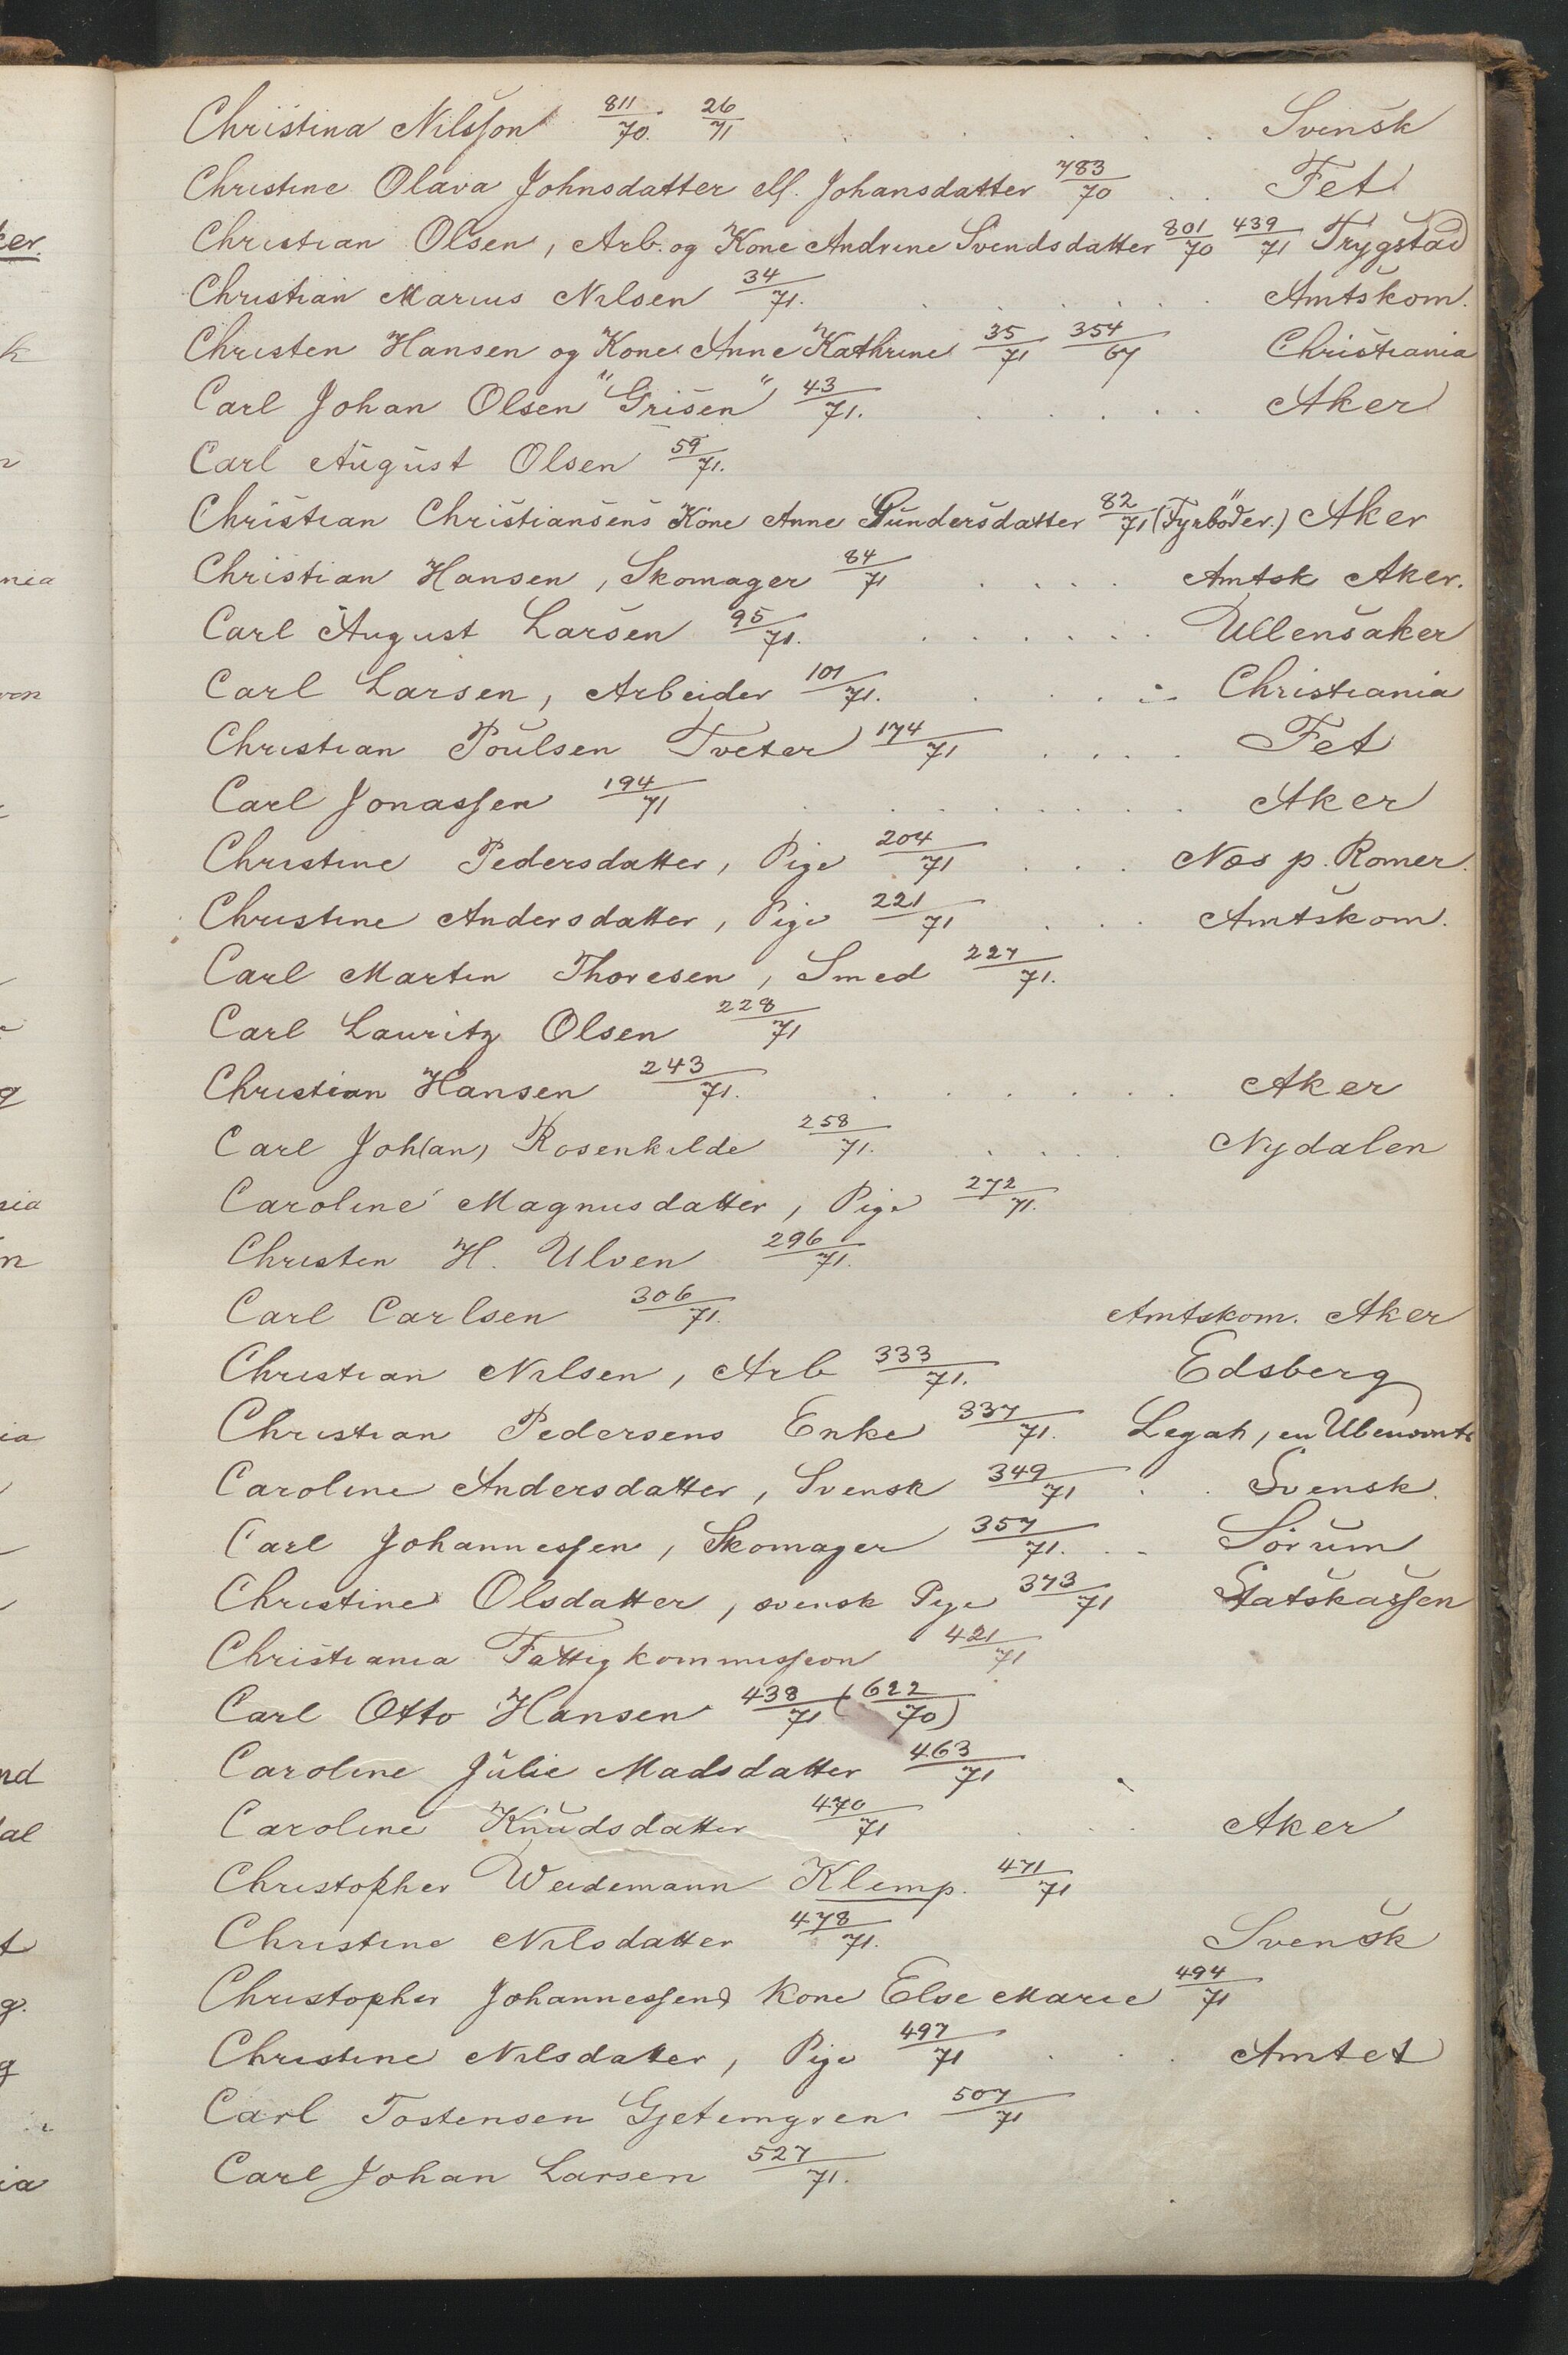 Christina Nilsson 811/70. 26/71 . . . . Svensk
Christine Olava Johnsdatter ell. Johansdatter 783/70 . . Fet
Christian Olsen, Arb. og Kone Andrine Svendsdatter 801/70 439/71 Trygstad
Christian Marius Nilsen 34/71. . . . . . Amtskom.
Christen Hansen og Kone Anne Kathrine 35/71 354/67 Christiania
Carl Johan Olsen "Grisen" 43/71. . . . . . Aker
Carl August Olsen 59/71.
Christian Christiansens Kone Anne Gundersdatter 82/71 (Fyrböder.) Aker
Christian Hansen, Skomager 84/71 . . . . Amtsk Aker.
Carl August Larsen 95/71. . . . . . . Ullensaker
Carl Larsen, Arbeider 101/71. . . . . Christiania
Christian Poulsen Tveter 174/71 . . . . Fet
Carl Jonassen 194/71 . . . . . . . Aker
Christine Pedersdatter, Pige 204/71 . . . Næs p. Romer.
Christine Andersdatter, Pige 221/71 . . . Amtskom.
Carl Martin Thoresen, Smed 227/71.
Carl Lauritz Olsen 228/71
Christian Hansen 243/71. . . . . . . Aker
Carl Joh(an) Rosenkilde 258/71. . . . . Nydalen
Caroline Magnusdatter, Pige 272/71.
Christen H. Ulven 296/71.
Carl Carlsen 306/71. Amtskom. Aker
Christian Nilsen, Arb 333/71. Edsberg
Christian Pedersens Enke 337/71. Legat, en Ubenævnt
Caroline Andersdatter, Svensk 349/71 . . Svensk.
Carl Johannessen, Skomager 357/71. . . Sörum
Christine Olsdatter, svensk Pige 373/71 Statskassen
Christiania Fattigkommission 421/71
Carl Otto Hansen 438/71 (622/70)
Caroline Julie Madsdatter 463/71
Caroline Knudsdatter 470/71 . . . Aker
Christopher Weidemann Klemp. 471/71
Christine Nilsdatter 478/71. Svensk
Christopher Johannessens Kone Else Marie 494/71
Christine Nilsdatter, Pige 497/71 . . . Amtet
Carl Tostensen Gjetemyren 507/71
Carl Johan Larsen 527/71.